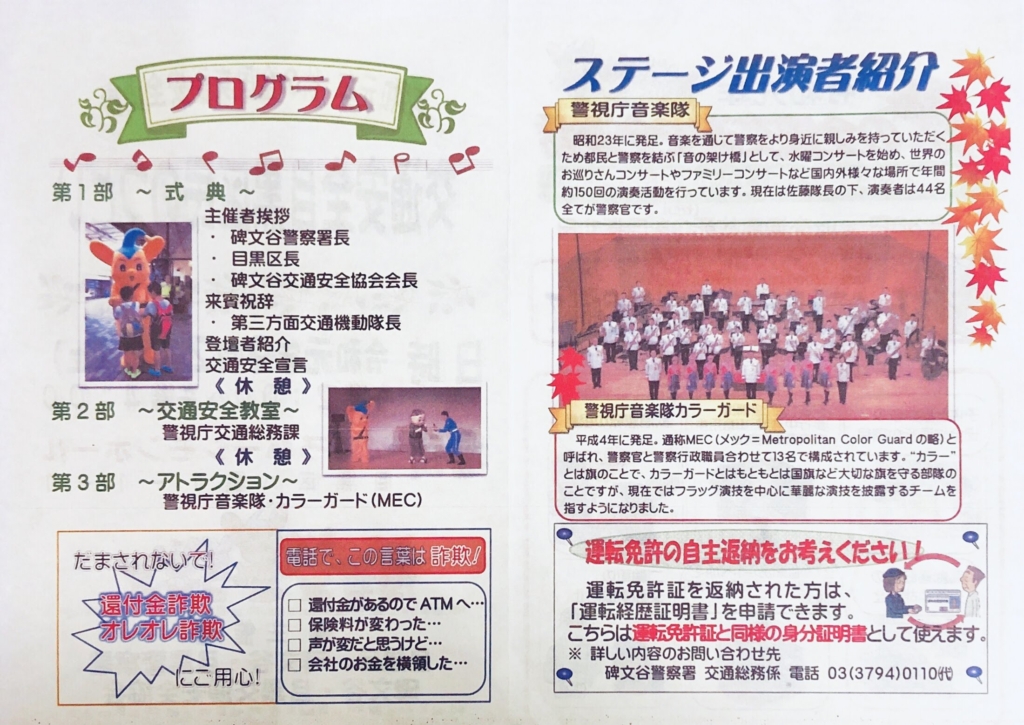 プログラム
第1部 ～ 式 典 ～
主催者挨拶
・ 碑文谷警察署長
・ 目黒区長
・ 碑文谷交通安全協会会長
来賓祝辞
・ 第三方面交通機動隊長
登壇者紹介
交通安全宣言
《 休 憩 》
第2部 ～交通安全教室～
警視庁交通総務課
《 休 憩 》
第3部 ～アトラクション～
警視庁音楽隊・カラーガード(MEC)
だまされないで!
還付金詐欺
オレオレ詐欺
にご用心!
電話で、この言葉は 詐欺!
□ 還付金があるので ATM へ…
□ 保険料が変わった…
□ 声が変だと思うけど…
□ 会社のお金を横領した…
ステージ出演者紹介
警視庁音楽隊
昭和23年に発足。音楽を通じて警察をより身近に親しみを持っていただく
ため都民と警察を結ぶ「音の架け橋」として、水曜コンサートを始め、世界の
お巡りさんコンサートやファミリーコンサートなど国内外様々な場所で年間
約150回の演奏活動を行っています。現在は佐藤隊長の下、演奏者は44名
全てが警察官です。
警視庁音楽隊カラーガード
平成4年に発足。通称MEC(メック=Metropolitan Color Guard の略)と
呼ばれ、警察官と警察行政職員合わせて13名で構成されています。“カラー”
とは旗のことで、カラーガードとはもともとは国旗など大切な旗を守る部隊の
ことですが、現在ではフラッグ演技を中心に華麗な演技を披露するチームを
指すようになりました。
運転免許の自主返納をお考えください!
運転免許証を返納された方は、
「運転経歴証明書」を申請できます。
こちらは運転免許証と同様の身分証明書として使えます。
※ 詳しい内容のお問い合わせ先
碑文谷警察署 交通総務係 電話 03(3794)0110㈹